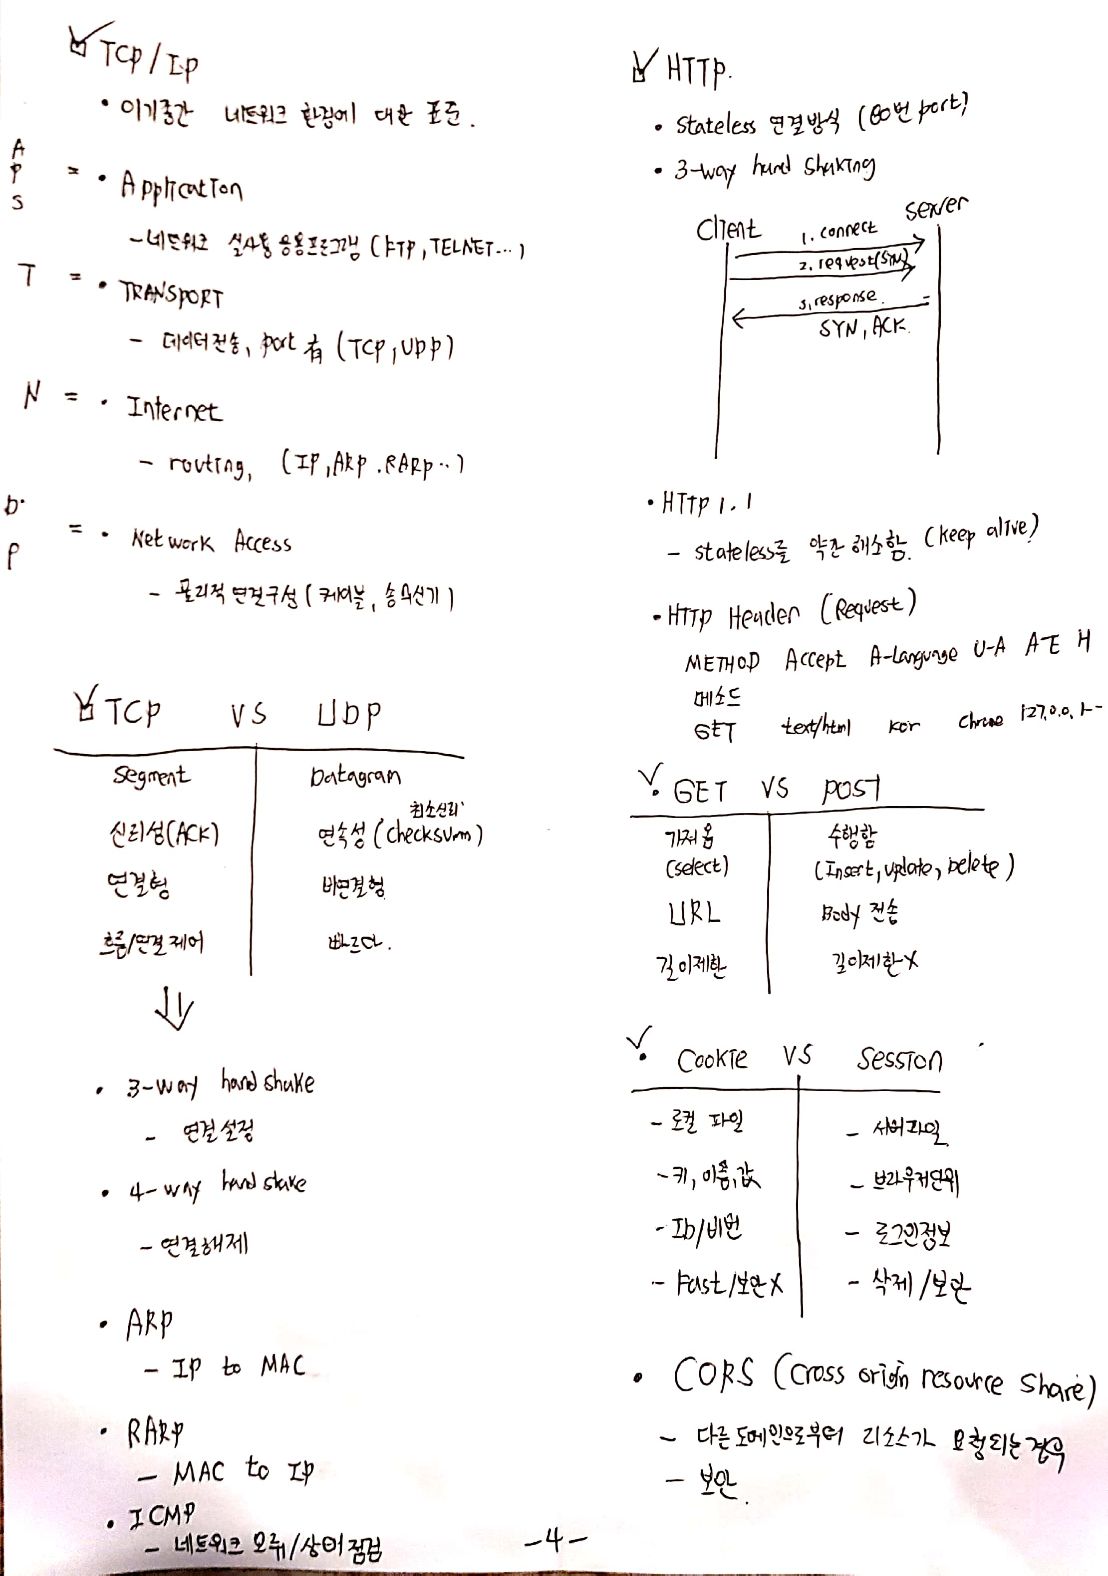 TCP/IP
• 이기종간 네트워크 환경에 대한 표준.
A
P
S
= • Application
- 네트워크 실사용 응용프로그램 (FTP, TELNET...)
T = • TRANSPORT
- 데이터전송, port 有 (TCP, UDP)
N = • Internet
- routing, (IP, ARP. RARP..)
D.
P
= • Network Access
- 물리적 연결구성 (케이블, 송수신기)
TCP VS UDP
Segment Datagram
최소신뢰
신뢰성(ACK) 연속성 (checksum)
연결형 비연결형
흐름/연결제어 빠르다.
• 3-way handshake
- 연결설정
• 4-way handshake
- 연결해제
• ARP
- IP to MAC
• RARP
- MAC to IP
• ICMP
- 네트워크 오류/상태점검
HTTP.
• Stateless 연결방식 (80번 port)
• 3-way hand shaking
Client Server
1. connect
2. request(SYN)
3. response.
SYN, ACK.
• HTTP 1.1
- stateless를 약간 해소함. (keep alive)
• HTTP Header (Request)
METHOD Accept A-Language U-A A-E H
메소드
GET text/html kor chrome 127.0.0.1--
• GET VS POST
가져옴 수행함
(select) (Insert, update, Delete)
URL Body 전송
길이제한 길이제한X
• Cookie VS Session
- 로컬 파일 - 서버파일
- 키, 이름, 값 - 브라우저단위
- ID/비번 - 로그인정보
- Fast/보안X - 삭제/보안
• CORS (Cross origin resource share)
- 다른 도메인으로부터 리소스가 요청되는 경우
- 보안.
-4-